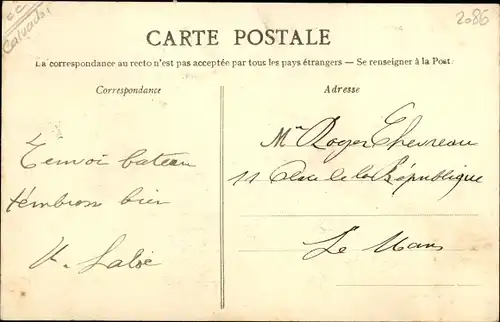 cc
Calvados
2086
CARTE POSTALE
La correspondance au recto n'est pas acceptée par tous les pays étrangers — Se renseigner à la Post
Correspondance
Adresse
T'envoi bateau
t'embrass bien
Mr Roger Chevreau
11 Place de la République
Le Mans